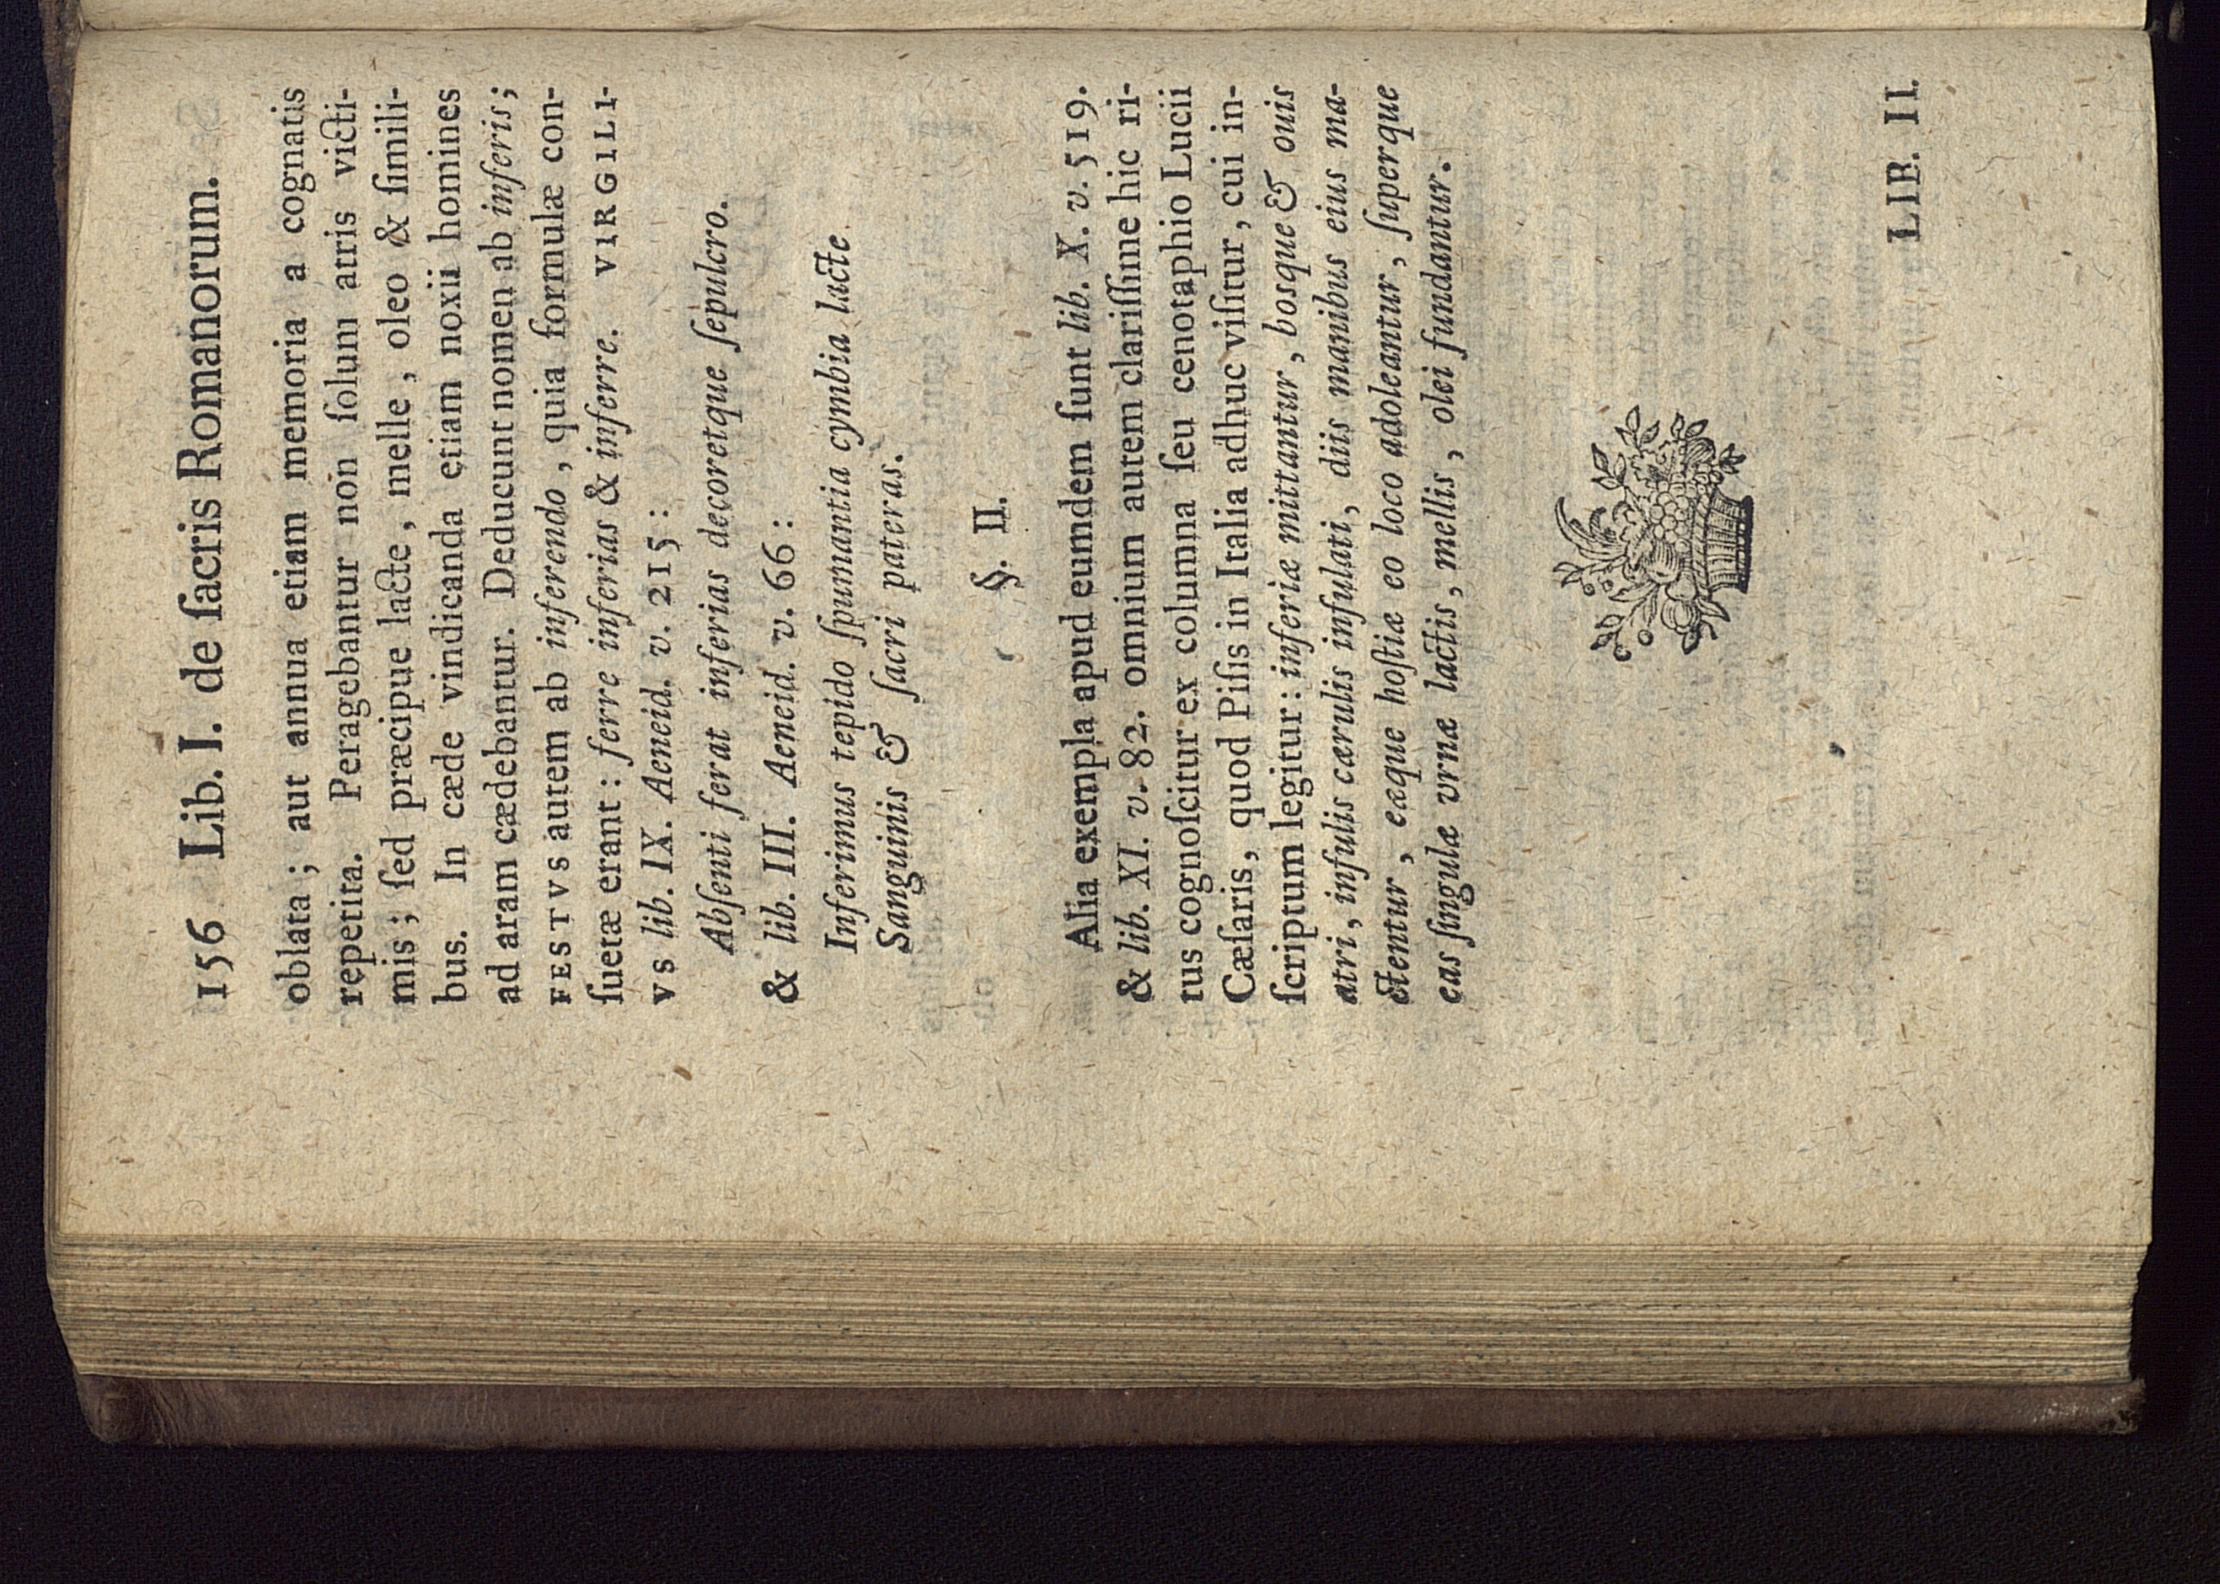 156 Lib. I. de ſacris Romanorum.
oblata; aut annua etiam memoria a cognatis
repetita. Peragebantur non ſolum atris victi-
mis; ſed præcipue lacte, melle, oleo & ſimili-
bus. In cæde vindicanda etiam noxii homines
ad aram cædebantur. Deducunt nomen ab inferis;
FESTVS autem ab inferendo, quia formulæ con-
ſuetæ erant: ferre inferias & inferre. VIRGILI-
VS lib. IX. Aeneid. v. 215:
Abſenti ferat inferias decoretque ſepulcro.
& lib. III. Aeneid. v. 66:
Inferimus tepido ſpumantia cymbia lacte
Sanguinis & ſacri pateras.
§. II.
Alia exempla apud eumdem ſunt lib. X. v. 519.
& lib. XI. v. 82. omnium autem clariſſime hic ri-
tus cognoſcitur ex columna ſeu cenotaphio Lucii
Cæſaris, quod Piſis in Italia adhuc viſitur, cui in-
ſcriptum legitur: inferiæ mittantur, bosque & ouis
atri, infulis cærulis infulati, diis manibus eius ma-
ctentur, eæque hoſtiæ eo loco adoleantur, ſuperque
eas ſingulæ vrnæ lactis, mellis, olei fundantur.
LIB. II.